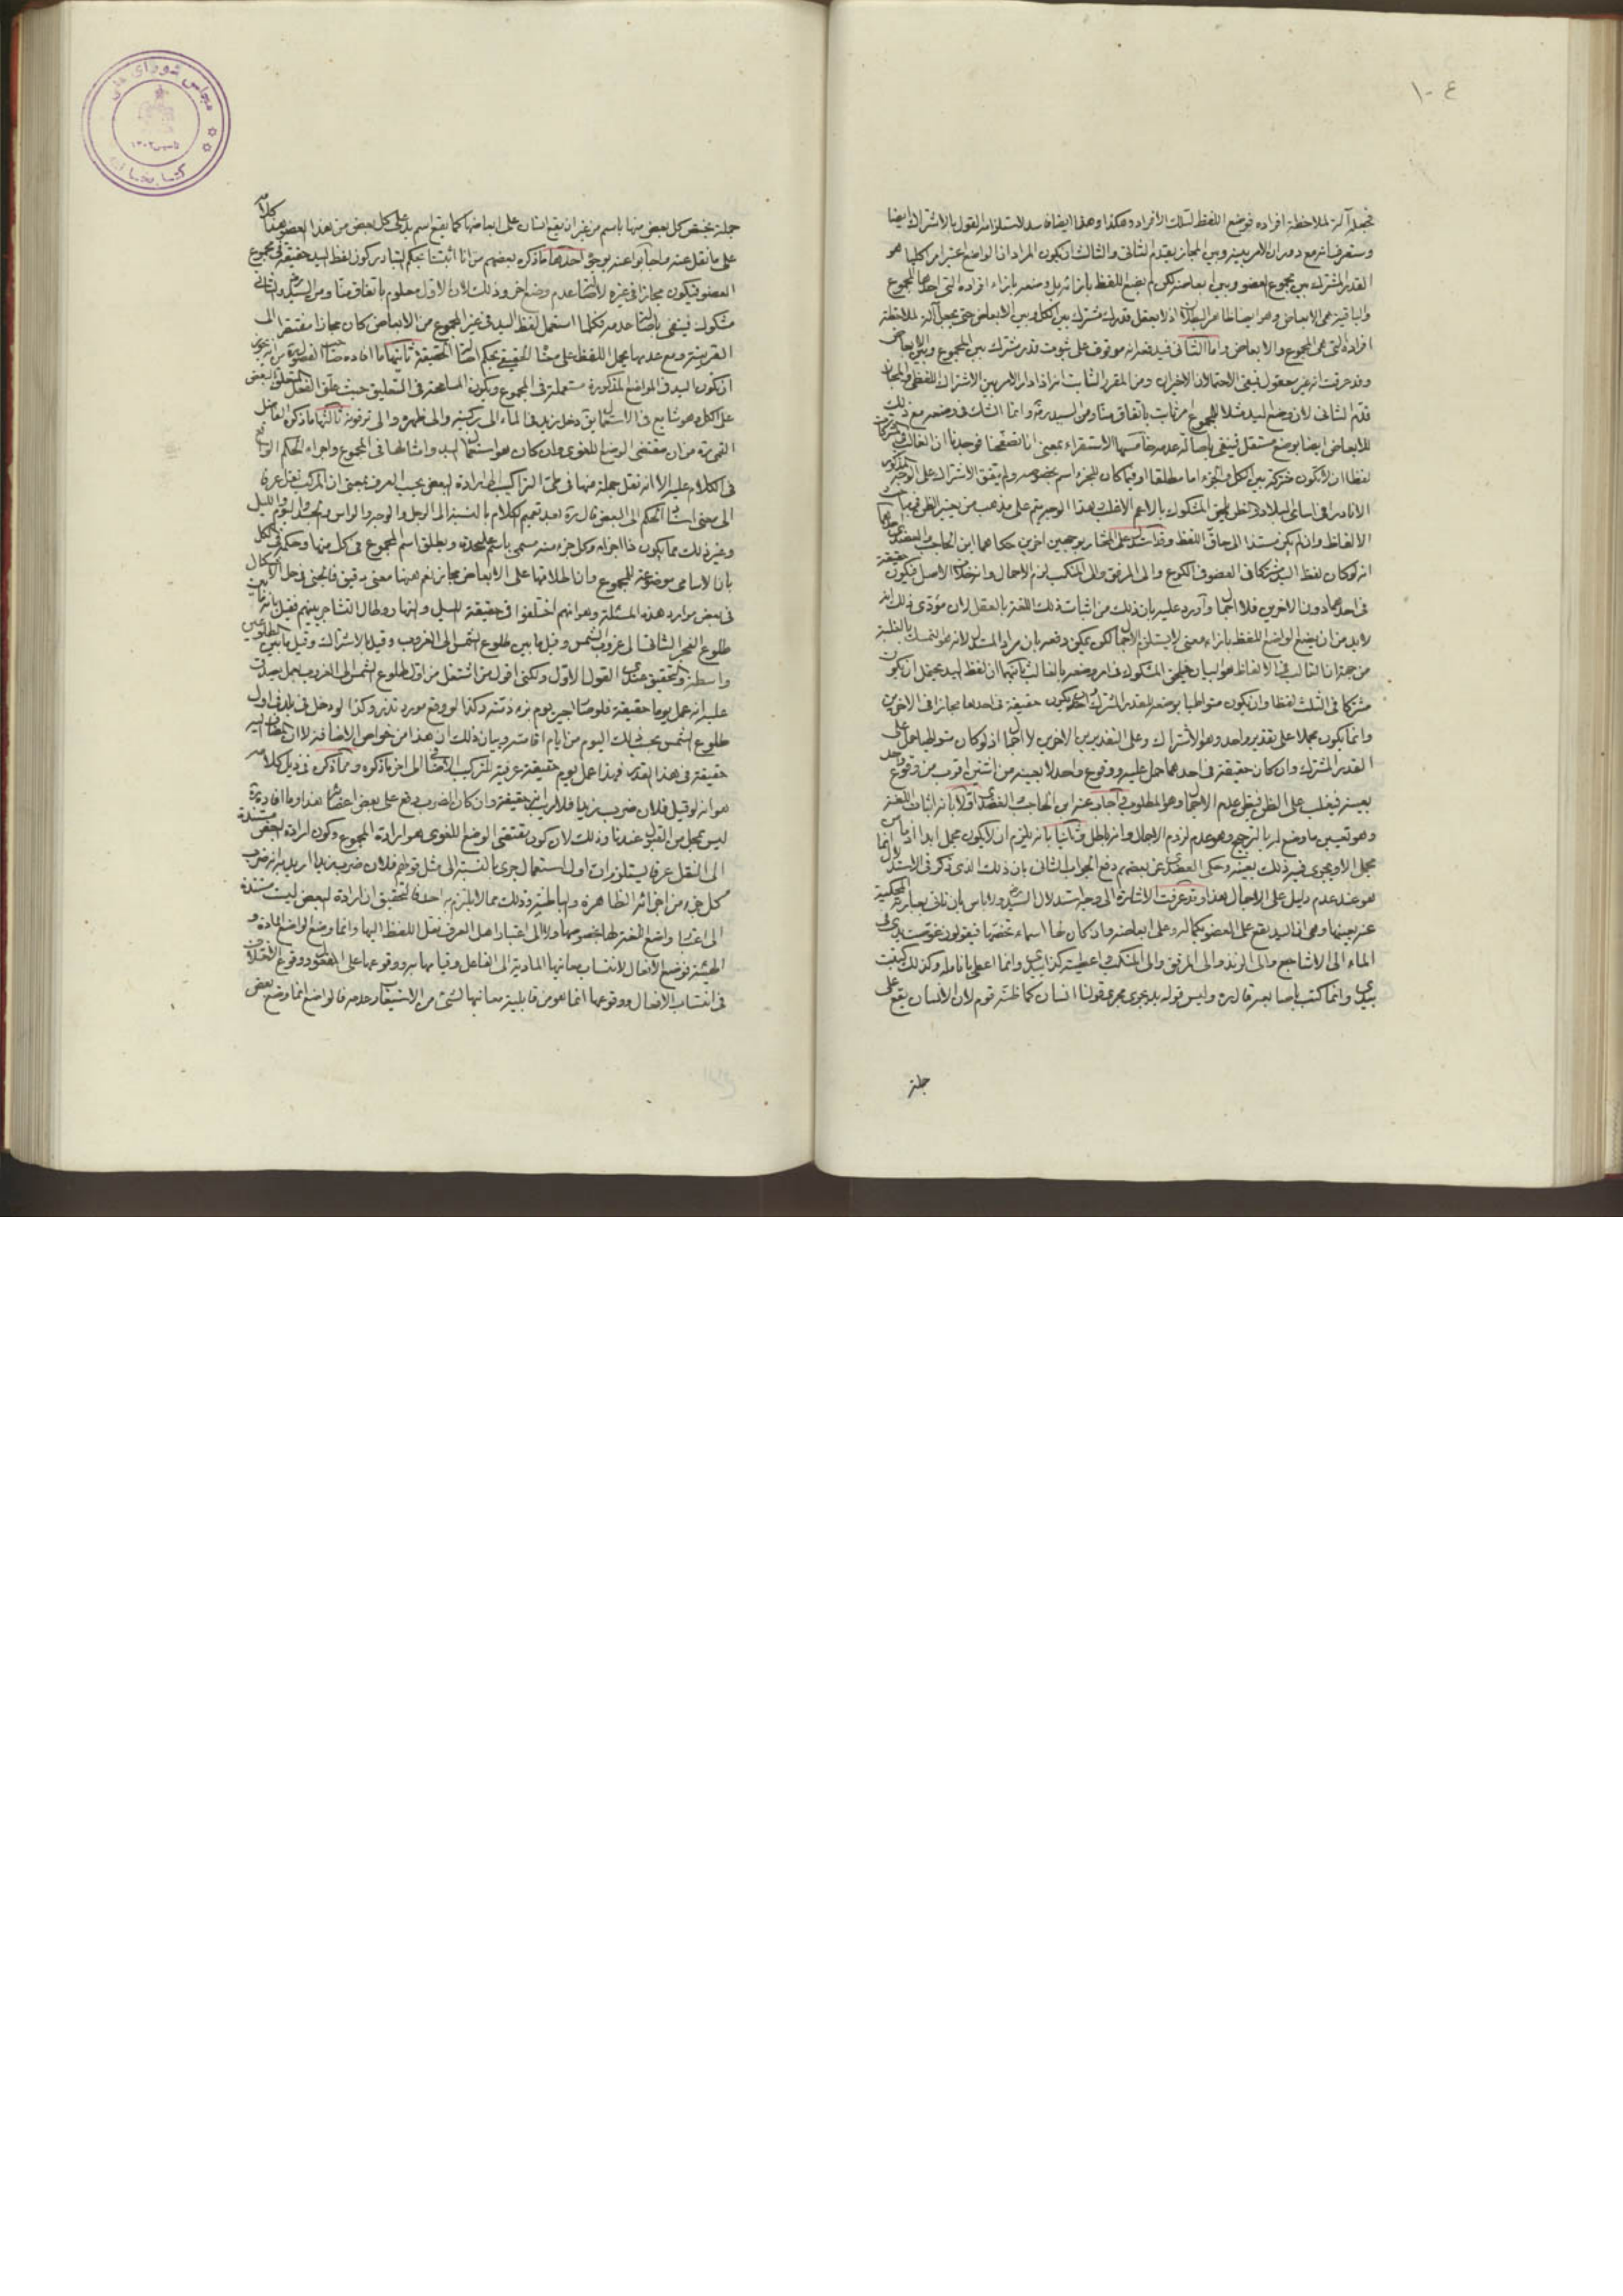 ١٠٤
تجعل آلة لملاحظة افراده فوضع اللفظ لتلك الافراد وهكذا وهذا ايضا فاسد لاستلزامه القول بالاشتراك ايضا
وستعرف انه مع دوران الامر بينه وبين المجاز يقدم الثانى والثالث ان يكون المراد ان الواضع اعتبر امرا كليا هو
القدر المشترك بين مجموع العضو وبين ابعاضه لكن لم يضع اللفظ بازائه بل وضعه بازاء افراده التى احدها المجموع
والباقية هى الابعاض وهو ايضا ظاهر البطلان اذ لا يعقل قدر مشترك بين الكل وبين الابعاض حتى يجعل آلة لملاحظة
افراده التى هى المجموع والابعاض واما الثانى فيدفعه انه موقوف على ثبوت قدر مشترك بين المجموع وبين الابعاض
وقد عرفت انه غير معقول فبقى الاحتمالان الاخيران ومن المقرر الثابت انه اذا دار الامر بين الاشتراك اللفظى والمجاز
قدم الثانى لان وضع اليد مثلا للمجموع امر ثابت باتفاق منا ومن السيد ره وانما الشك فى وضعه مع ذلك
للابعاض ايضا بوضع مستقل فينفى باصالة عدمه خامسها الاستقراء بمعنى انا تصفحنا فوجدنا ان الغالب فى المشتركات
لفظا ان لا تكون مشتركة بين الكل والجزء اما مطلقا او فيما كان للجزء اسم بخصوصه ولم يتفق الاشتراك على الوجه المذكور
الا نادرا فى اسامى البلاد والظن يلحق المشكوك بالاعم الاغلب وهذا الوجه يتم على مذهب من يعتبر الظن فى مباحث
الالفاظ وان لم يكن مستندا الى حاق اللفظ وقد استدل على المختار بوجهين اخرين حكاهما ابن الحاجب والعضدى احدهما
انه لو كان لفظ اليد مشتركا فى العضو الى الكوع والى المرفق والى المنكب لزم الاجمال وانه خلاف الاصل فيكون حقيقة
فى احدها دون الاخرين فلا اجمال واورد عليه بان ذلك من اثبات اللغة بالعقل لان مؤدى ذلك انه
لا بد من ان يضع الواضع اللفظ بازاء معنى لا يستلزم الاجمال لكن يمكن دفعه بان مراد المستدل لانه هو التمسك بالغلبة
من جهة ان الغالب فى الالفاظ هو البيان فيلحق المشكوك فى امر وضعه بالغالب ثانيهما ان لفظ اليد يحتمل ان يكون
مشتركا فى الثلث لفظا وان يكون متواطيا بوضعه للقدر المشترك وان يكون حقيقة فى احدها مجازا فى الاخرين
وانما يكون مجملا على تقدير واحد وهو الاشتراك وعلى التقديرين الاخرين لا اجمال اذ لو كان متواطيا حمل على
القدر المشترك وان كان حقيقة فى احدهما حمل عليه ووقوع واحد لا بعينه من اثنين اقرب من وقوع واحد
بعينه فيغلب على الظن فيظن عدم الاجمال وهو المطلوب واجاب عنه ابن الحاجب والعضدى اولا بانه اثبات اللغة
وهو تعيين ما وضع له بالترجيح وهو عدم لزوم الاجمال وانه باطل وثانيا بانه يلزم ان لا يكون مجمل ابدا اذ ما من
مجمل الا ويجرى فيه ذلك بعينه وحكى العضدى عن بعضهم دفع الجواب الثانى بان ذلك الذى ذكر فى الاستدلال انما
هو عند عدم دليل على الاجمال هذا وقد عرفت الاشارة الى وجه استدلال السيد ره ولا باس بان ناتى بعبارته المحكية
عنه بعينها وهى ان اليد يقع على العضو بكماله وعلى ابعاضه وان كان لها اسماء تخصها فيقولون غوصت يدى فى
الماء الى الاشاجع والى الزند والى المرفق والى المنكب واعطيته كذا بيدى وانما اعطى بانامله وكذلك كتبت
بيدى وانما كتب باصابعه قال ره وليس قوله يد يجرى مجرى قولنا انسان كما ظنه قوم لان الانسان يقع على
جملة
جملة يختص كل بعض منها باسم من غير ان يقع انسان على ابعاضها كما يقع اسم يد على كل بعض من هذا العضو هذا كلامه
على ما نقل عنه واجابوا عنه بوجوه احدها ما ذكره بعضهم من انا اثبتنا بحكم التبادر كون لفظ اليد حقيقة فى مجموع
العضو فيكون مجازا فى غيره لاصالة عدم وضع اخر وذلك لان الاول معلوم باتفاق منا ومن السيد ره والثانى
مشكوك فينفى باصالة عدمه فكلما استعمل لفظ اليد فى غير المجموع من الابعاض كان مجازا مفتقرا الى
القرينة ومع عدمها يحمل اللفظ على معناه الحقيقى بحكم اصالة الحقيقة ثانيها ما افاده صاحب الفصول ره من انه يجوز
ان يكون اليد فى المواضع المذكورة مستعملة فى المجموع ويكون المسامحة فى التعليق حيث علق الفعل المتعلق بالبعض
على الكل وهو شايع فى الاستعمال يق دخل زيد فى الماء الى ركبتيه والى ظهره والى ترقوته ثالثها ما ذكره الفاضل
القمى ره من ان مقتضى الوضع اللغوى وان كان هو استعمال اليد وامثالها فى المجموع واجراء الحكم الواقع
فى الكلام عليه الا انه نقل جملة منها فى طى التراكيب الى ارادة البعض بحسب العرف بمعنى ان المركب نقل عرفا
الى معنى استناد الحكم الى البعض قال ره بعد تعميم الكلام بالنسبة الى الرجل والوجه والراس والجسد واليوم والليل
وغير ذلك مما يكون ذا اجزاء وكل جزء منه مسمى باسم عليحدة ويطلق اسم المجموع فى كل منها وحكمه فى الكل
بان الاسامى موضوعة للمجموع وان اطلاقها على الابعاض مجاز نعم ههنا معنى دقيق فالحق فى حل الاشكال
فى بعض موارد هذه المسئلة وهو انهم اختلفوا فى حقيقة الليل والنهار وطال التشاجر بينهم فقيل بانه ما بين
طلوع الفجر الثانى الى غروب الشمس وقيل ما بين طلوع الشمس الى الغروب وقيل بالاشتراك وقيل ما بين الطلوعين
واسطة والتحقيق عندى القول الاول ولكنى اقول من اشتغل من اول طلوع الشمس الى الغروب بعمل يصدق
عليه انه عمل يوما حقيقة فلو صار اجير يوم برء ذمته وكذا لو وقع مورد نذر وكذا لو دخل فى بلد فى اول
طلوع الشمس يحسب ذلك اليوم من ايام اقامته وبيان ذلك ان هذا من خواص الاضافة لا ان المضاف اليه
حقيقة فى هذا القدر فهذا عمل يوم حقيقة عرفية للتركيب الاضافى الى اخر ما ذكره ومما ذكره فى ذيل كلامه
هو انه لو قيل فلان ضرب زيدا فلا ريب انه حقيقة وان كان الضرب وقع على بعض اعضائه هذا وما افاده ره
ليس بمحل من القبول عندنا وذلك لان كون مقتضى الوضع اللغوى هو ارادة المجموع وكون ارادة البعض مستندة
الى النقل عرفا يستلزم ان اول استعمال جرى بالنسبة الى مثل قولهم فلان ضرب زيدا اريد به انه ضرب
كل جزء من اجزائه الظاهرة والباطنة وذلك مما لا يلتزم به احد فالتحقيق ان ارادة البعض ليست مستندة
الى اعتبار واضع اللغة لها بخصوصها ولا الى اعتبار اهل العرف نقل اللفظ اليها وانما وضع الواضع المادة و
الهيئة فوضع الافعال لانتساب معانيها المادية الى الفاعل وقيامها به ووقوعها على المفعول ووقوع الاختلاف
فى انتساب الافعال ووقوعها انما هو من قابلية معانيها لشئ من الاستيعاب وعدمه فالواضع انما وضع بعض
مجلس شورای ملی
کتابخانه